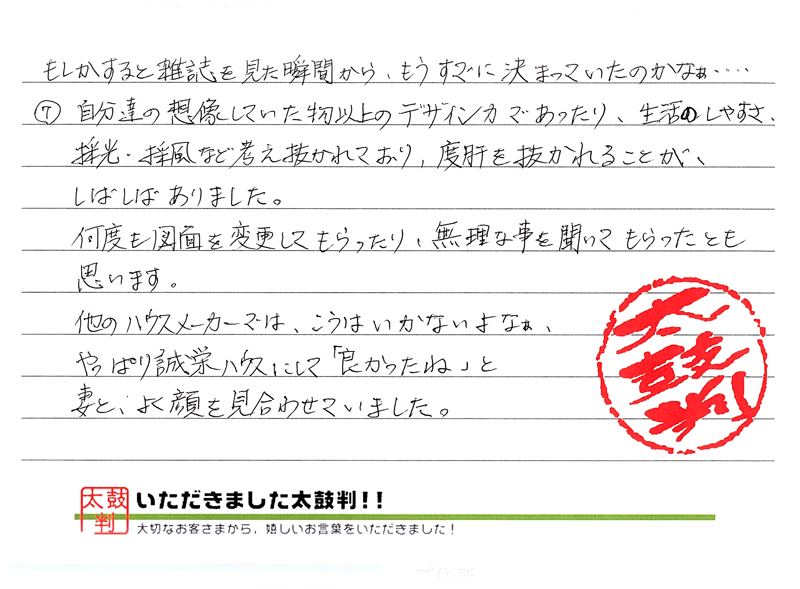 もしかすると雑誌を見た瞬間から、もうすでに決まっていたのかなぁ‥‥
⑦ 自分達の想像していた物以上のデザイン力であったり、生活のしやすさ、
採光・採風など考え抜かれており、度肝を抜かれることが、
しばしばありました。
何度も図面を変更してもらったり、無理な事を聞いてもらったとも
思います。
他のハウスメーカーでは、こうはいかないよなぁ、
やっぱり誠栄ハウスにして「良かったね」と
妻と、よく顔を見合わせていました。
太鼓判
太鼓判
いただきました太鼓判!!
大切なお客さまから、嬉しいお言葉をいただきました！